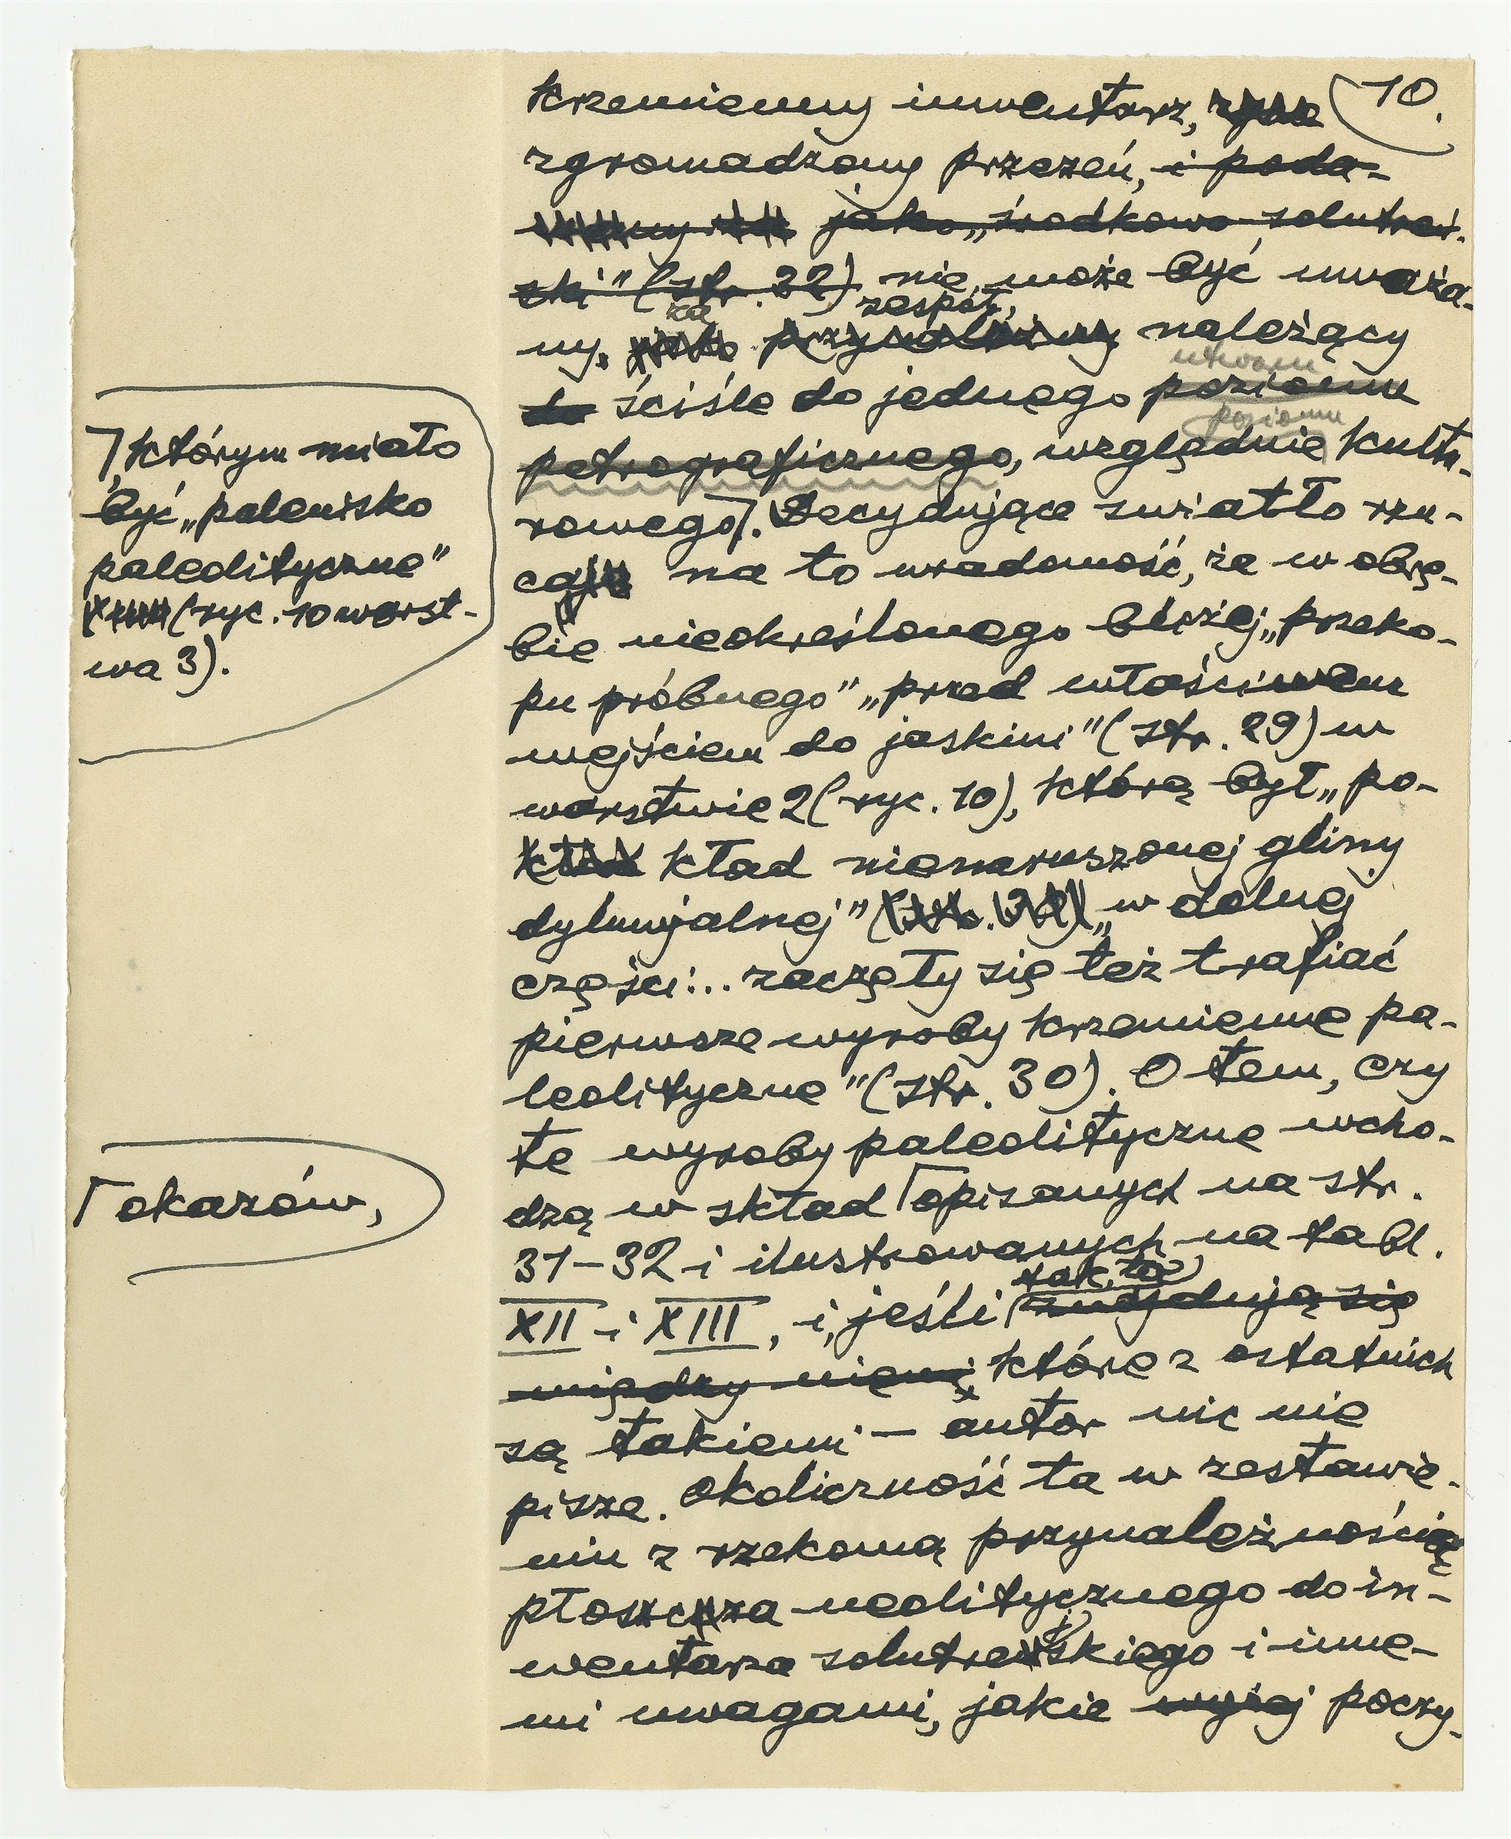 10.
krzemienny inwentarz,
zgromadzony przezeń, i poda-
ny jako „środkowo solutreń-
ski" (str. 32) nie może być uważa-
za zespół,
ny, należący
utworu
do ściśle do jednego poziomu
poziomu
petrograficznego, względnie kultu-
rowego ⌉. Decydujące światło rzu-
ca na to wiadomość, że w obrę-
bie nieokreślonego bliżej „przeko-
pu próbnego" „przed właściwem
wejściem do jaskini" (str. 29) w
warstwie 2 (ryc. 10), którą był „po-
kład nienaruszonej gliny
dyluwjalnej" „w dolnej
części... zaczęły się też trafiać
pierwsze wyroby krzemienne pa-
leolityczne" (str. 30). O tem, czy
te wyroby paleolityczne wcho-
dzą w skład ⌈ opisanych na str.
31-32 i ilustrowanych na tabl.
tak, to
XII i XIII, i, jeśli znajdują się
między niemi, które z ostatnich
są takiemi — autor nic nie
pisze. Okoliczność ta w zestawie-
niu z rzekomą przynależnością
płoszcza neolitycznego do in-
wentarza solutreńskiego i inne-
mi uwagami, jakie wyżej poczy-
⌉ którym miało
być „palenisko
paleolityczne"
(ryc. 10 warst-
wa 3).
⌈ okazów,